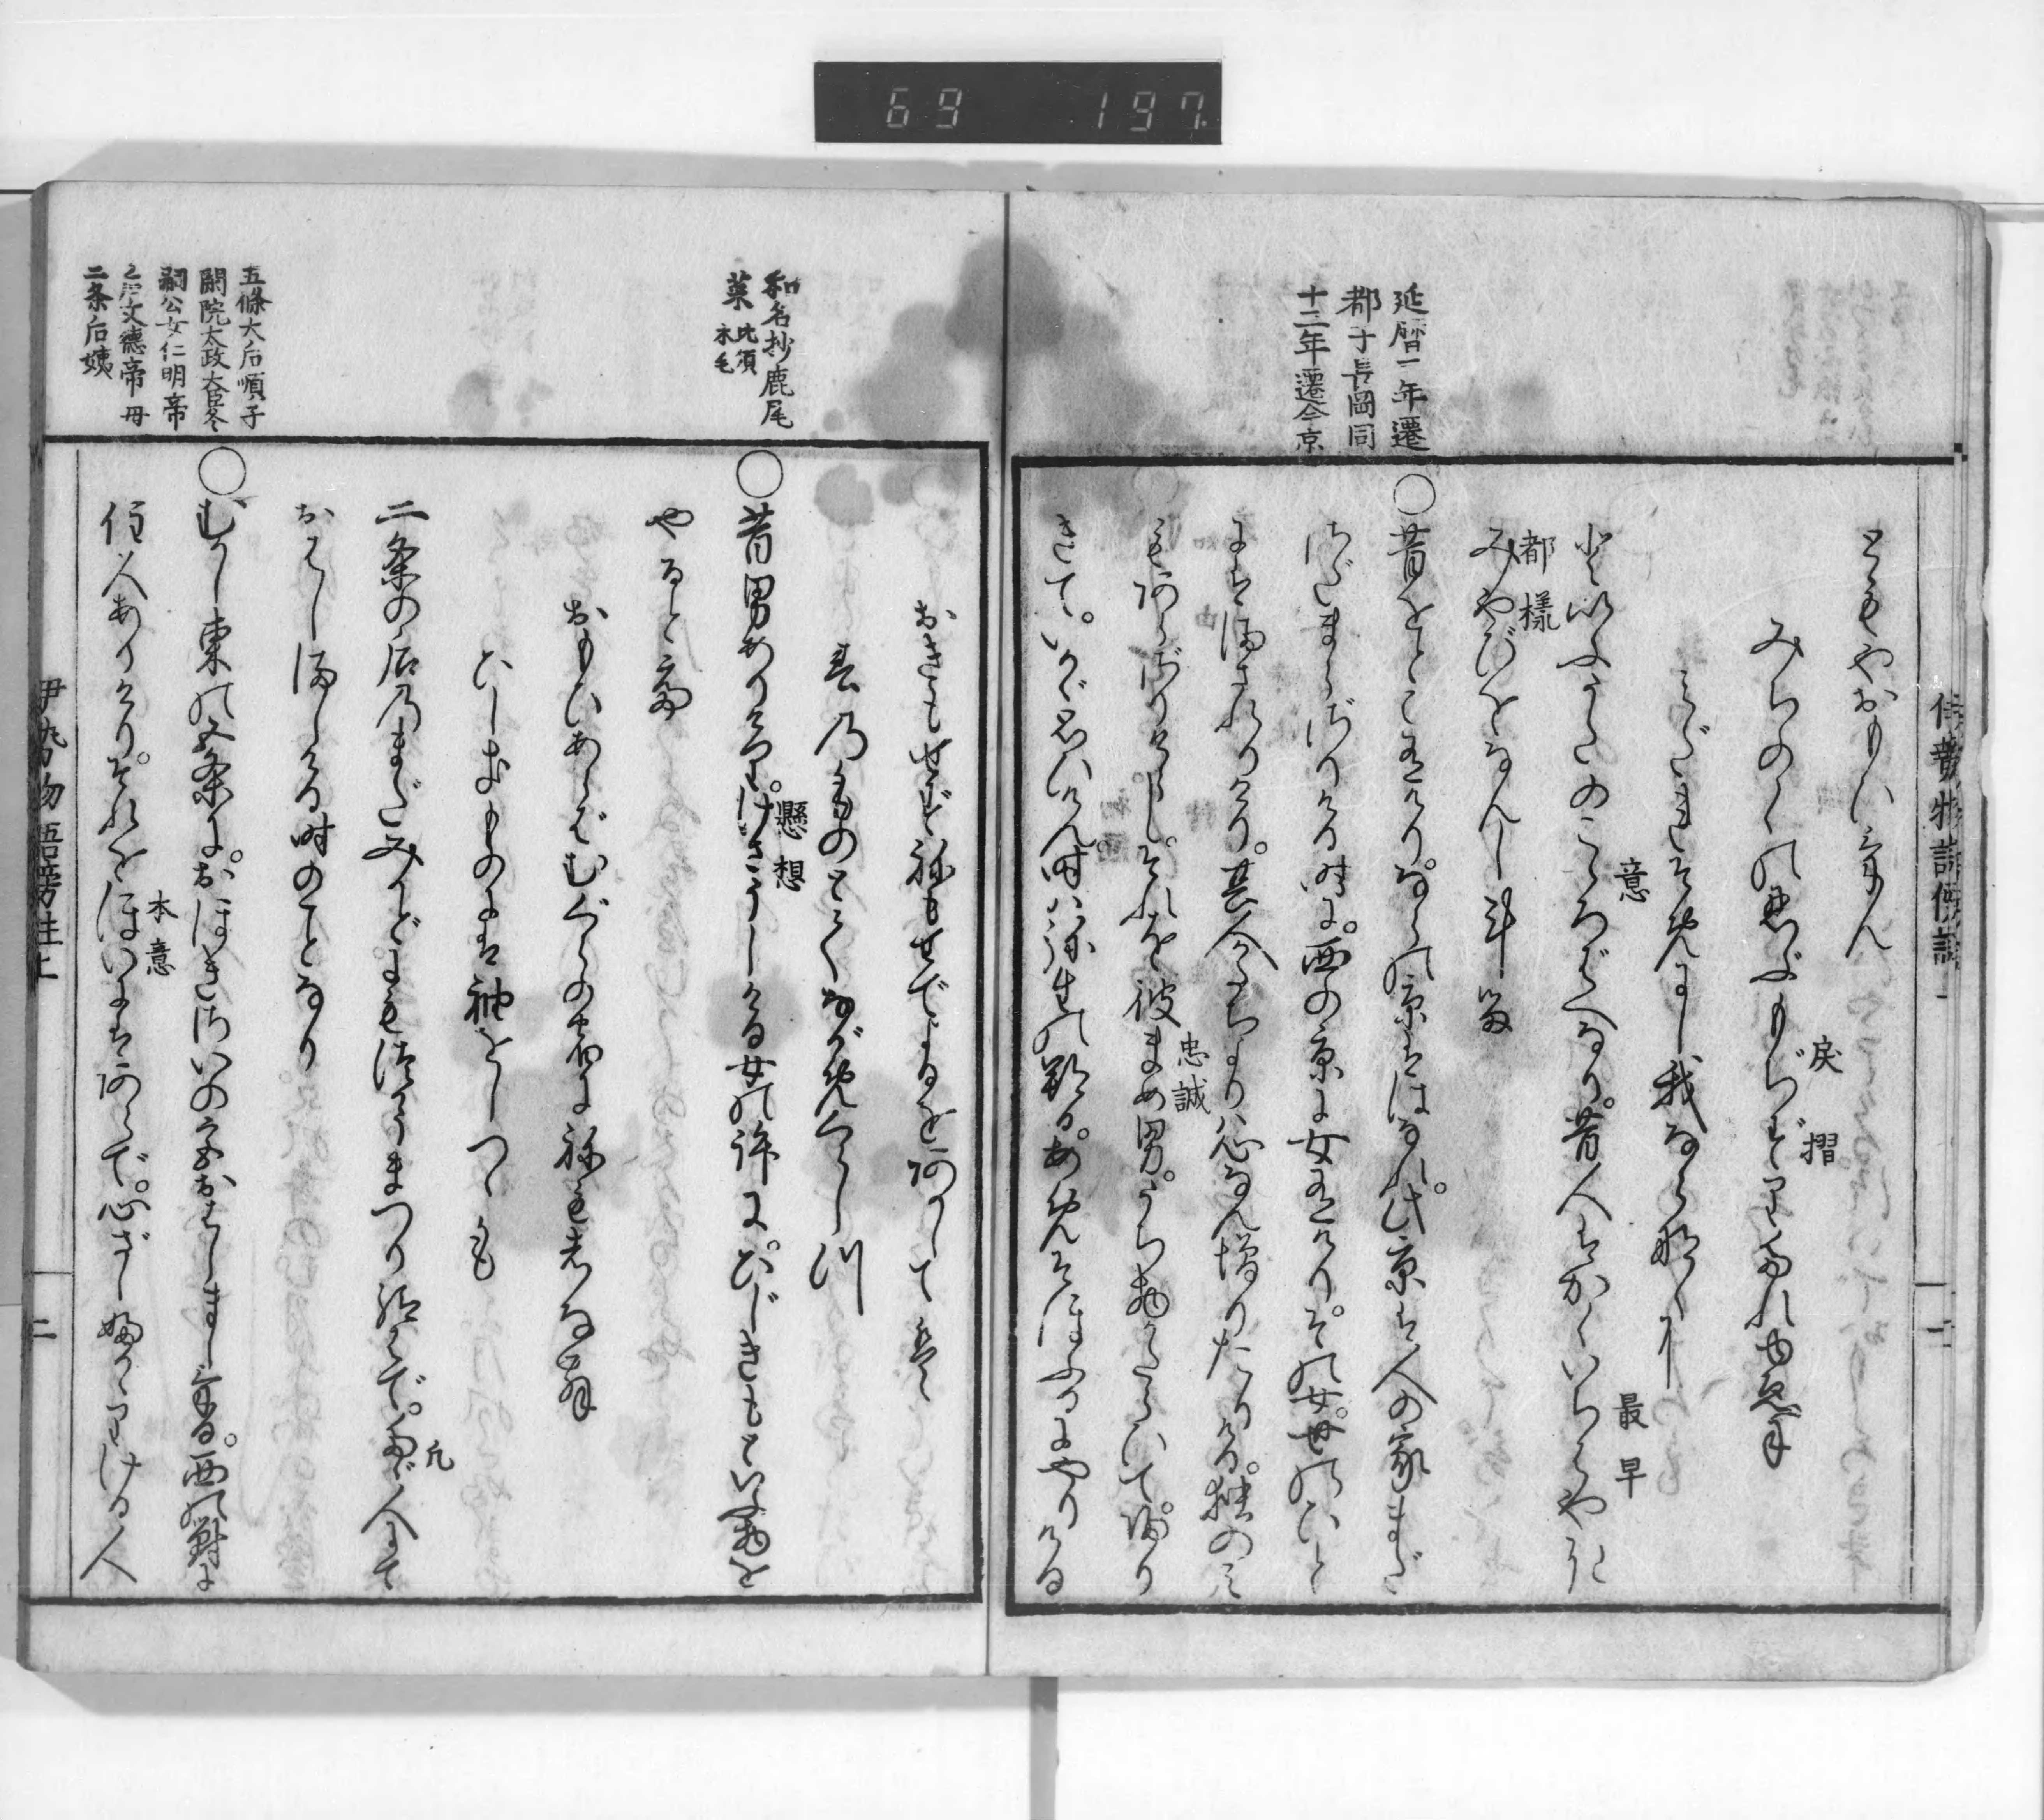 69 197
延暦二年遷
都于長岡同
十三年遷今京
ともやおもひけん
みちのくの忍ぶもぢずりたれゆゑに
戻 摺
みだれそめにし我ならなくに
といふうたのこゝろばへなり。昔人はかくいちはやき
意
最早
みやびをなんしける
都様
○昔をとこ有けり。ならの京ははなれ。此京は人の家まだ
さだまらざりける時に。西の京に女有けり。その女。世のひと
にはまされりけり。其人かたちよりは心なん増りたりける。独のみ
もあらざりけらし。それを彼まめ男。うち物かたらひて。帰り
忠誠
きて。いかゞ思ひけん。時は弥生の朔日。あめそほふるにやりける
おきもせずねもせでよるをあかしては
春のものとてながめくらしつ
和名抄鹿尾
菜 比須
木毛
○昔男ありけり。けさうしける女の許に。ひじきもといふ物を
懸想
やるとて
おもひあらばむぐらの宿にねもしなん
ひじきものには袖をしつゝも
二条の后のまだみかどにもつかうまつり給はで。たゞ人にて
凡
おはしましける時のことなり
五條大后順子
閑院太政大臣冬
嗣公女仁明帝
之后文徳帝母
二条后姨
○むかし東の五条に。おほきさいの宮おはしましける。西の対に
住人ありけり。それをほいにはあらで。心ざしふかゝりける人
本意
伊勢物語傍註上
二